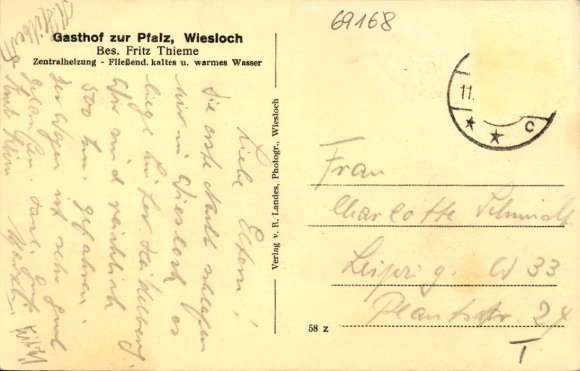 69168
Gasthof zur Pfalz, Wiesloch
Bes. Fritz Thieme
Zentralheizung - Fließend. kaltes u. warmes Wasser
Liebe Eltern!
Die erste Nacht schlafen
wir in Wiesloch, es
liegt hinter Heidelberg.
Wir sind reichlich
500 km gefahren.
Der Wagen ist sehr gut
gelaufen.
Verlag v. R. Landes, Photogr., Wiesloch
11.
c
Frau
Charlotte Schmidt
Leipzig W 33
58 z
24
T